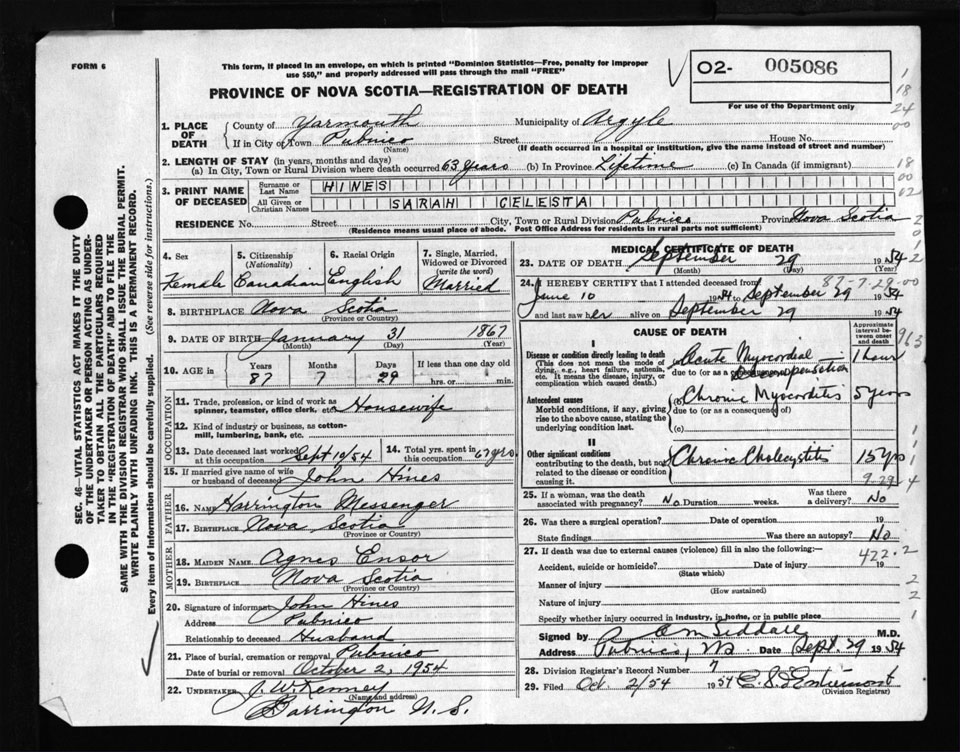 FORM 6
This form, if placed in an envelope, on which is printed "Dominion Statistics—Free, penalty for improper
use $50," and properly addressed will pass through the mail "FREE"
PROVINCE OF NOVA SCOTIA—REGISTRATION OF DEATH
O2- 005086
For use of the Department only
1. PLACE OF DEATH
County of Yarmouth Municipality of Argyle
If in City or Town Pubnico Street House No.
(Name) (If death occurred in a hospital or institution, give the name instead of street and number)
2. LENGTH OF STAY (in years, months and days)
(a) In City, Town or Rural Division where death occurred 63 years (b) In Province Lifetime (c) In Canada (if immigrant)
3. PRINT NAME OF DECEASED
Surname or Last Name HINES
All Given or Christian Names SARAH CELESTA
RESIDENCE No. Street City, Town or Rural Division Pubnico Province Nova Scotia
(Residence means usual place of abode. Post Office Address for residents in rural parts not sufficient)
4. Sex Female
5. Citizenship (Nationality) Canadian
6. Racial Origin English
7. Single, Married, Widowed or Divorced (write the word) Married
8. BIRTHPLACE Nova Scotia
(Province or Country)
9. DATE OF BIRTH January 31 1867
(Month) (Day) (Year)
10. AGE in Years 87 Months 7 Days 29 If less than one day old hrs. or min.
OCCUPATION
11. Trade, profession, or kind of work as spinner, teamster, office clerk, etc. Housewife
12. Kind of industry or business, as cotton-mill, lumbering, bank, etc.
13. Date deceased last worked at this occupation Sept 10/54
14. Total yrs. spent in this occupation 67 yrs.
15. If married give name of wife or husband of deceased John Hines
FATHER
16. NAME Harrington Messenger
17. BIRTHPLACE Nova Scotia
(Province or Country)
MOTHER
18. MAIDEN NAME Agnes Ensor
19. BIRTHPLACE Nova Scotia
(Province or Country)
20. Signature of informant John Hines
Address Pubnico
Relationship to deceased Husband
21. Place of burial, cremation or removal Pubnico
Date of burial or removal October 2, 1954
22. UNDERTAKER J. W. Kenney
(Name and address)
Barrington N. S.
MEDICAL CERTIFICATE OF DEATH
23. DATE OF DEATH September 29 1954
(Month) (Day) (Year)
87-7-29-00
24. I HEREBY CERTIFY that I attended deceased from
June 10 1954 to September 29 1954
and last saw her alive on September 29 1954
CAUSE OF DEATH
Approximate interval between onset and death
I
Disease or condition directly leading to death
(This does not mean the mode of dying, e.g., heart failure, asthenia, etc. It means the disease, injury, or complication which caused death.)
(a) Acute Myocardial 1 hour
due to (or as a consequence of) Decompensation
Antecedent causes
Morbid conditions, if any, giving rise to the above cause, stating the underlying condition last.
(b) Chronic Myocarditis 5 years
due to (or as a consequence of)
(c)
II
Other significant conditions
contributing to the death, but not related to the disease or condition causing it.
Chronic Cholecystitis 15 yrs
9.29.4
25. If a woman, was the death associated with pregnancy? No Duration weeks. Was there a delivery? No
26. Was there a surgical operation? Date of operation 19
State findings Was there an autopsy? No
27. If death was due to external causes (violence) fill in also the following:—
422.2
Accident, suicide or homicide? Date of injury 19
(State which)
Manner of injury
(How sustained)
Nature of injury
Specify whether injury occurred in industry, in home, or in public place
Signed by O M Siddall M.D.
Address Pubnico, NS Date Sept. 29 1954
28. Division Registrar's Record Number 7
29. Filed Oct. 2/54 1954
(Division Registrar)
SEC. 46—VITAL STATISTICS ACT MAKES IT THE DUTY
OF THE UNDERTAKER OR PERSON ACTING AS UNDER-
TAKER TO OBTAIN ALL THE PARTICULARS REQUIRED
IN THE "REGISTRATION OF DEATH" AND TO FILE THE
SAME WITH THE DIVISION REGISTRAR WHO SHALL ISSUE THE BURIAL PERMIT.
WRITE PLAINLY WITH UNFADING INK. THIS IS A PERMANENT RECORD.
Every item of information should be carefully supplied. (See reverse side for instructions.)